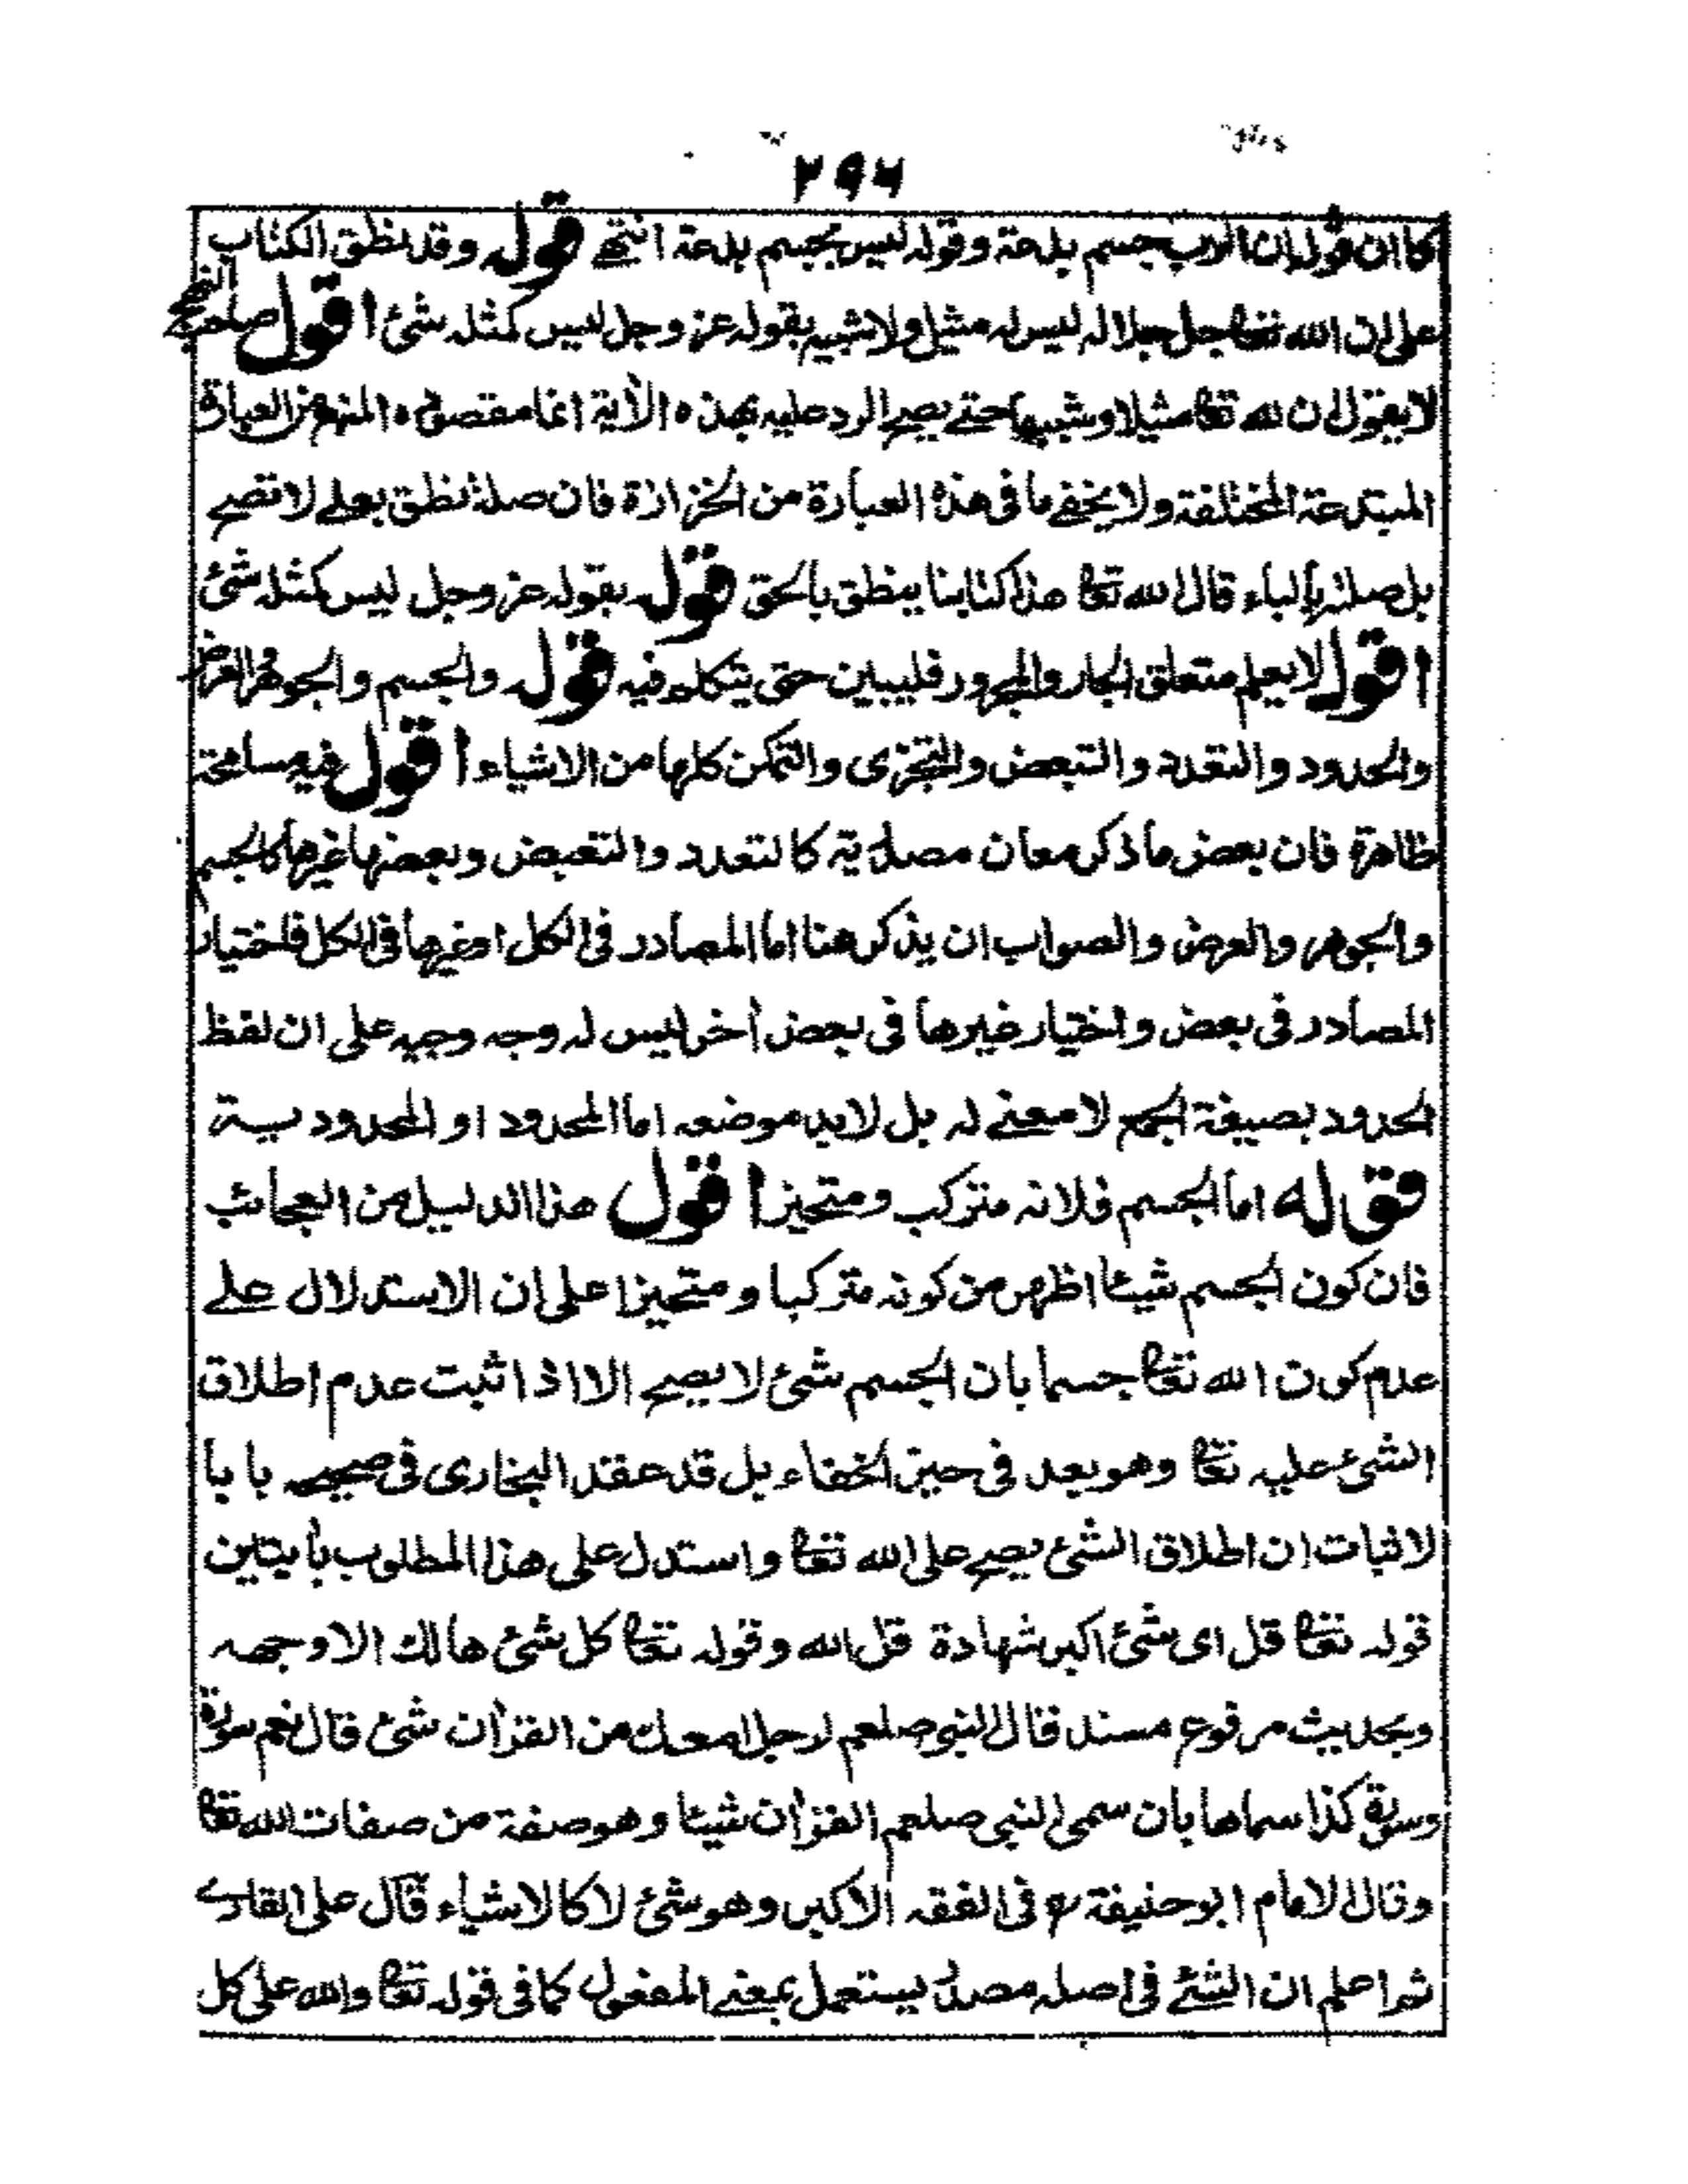 ۲۹۶
كما ان قول ان الرب جسم بدعة وقوله ليس بجسم بدعة انتهى قوله وقد نطق الكتاب
على ان الله تعالى جل جلاله ليس له مثيل ولا شبيه بقوله عز وجل ليس كمثله شئ اقول صاحب النهج
لا يقول ان لله تعالى مثيلا وشبيها حتى يصح الرد عليه بهذه الآية انما مقصوده المنع عن العبارة
المبتدعة المختلفة ولا يخفى ما فى هذه العبارة من الخزازة فان صلة نطق بعلى لا تصح
بل صلته بالباء قال الله تعالى هذا كتابنا ينطق بالحق قوله بقوله عز وجل ليس كمثله شئ
اقول لا يعلم متعلق الجار والمجرور فليبين حتى يتكلم فيه قوله والجسم والجوهر والعرض
والحدود والتعدد والتبعض والتجزى والتمكن كلها من الاشياء اقول فيه مسامحة
ظاهرة فان بعض ما ذكر معان مصدرية كالتعدد والتعبض وبعضها غيرها كالجسم
والجوهر والعرض والصواب ان يذكر هنا اما المصادر فى الكل او غيرها فى الكل فاختيار
المصادر فى بعض واختيار غيرها فى بعض أخر ليس له وجه وجيه على ان لفظ
الحدود بصيغة الجمع لا معنے له بل لا بد موضعه اما المحدود او المحدودية
قوله اما الجسم فلانه متركب ومتحيز اقول هذا الدليل من العجائب
فان كون الجسم شيئا اظهر من كونه متركبا ومتحيزا على ان الاستدلال علے
عدم كون الله تعالى جسما بان الجسم شئ لا يصح الا اذا ثبت عدم اطلاق
الشئ عليه تعالى وهو بعد فى حيز الخفاء بل قد عقد البخارى فى صحيحه بابا
لاثبات ان اطلاق الشئ يصح على الله تعالى واستدل على هذا المطلوب بأيتين
قوله تعالى قل اى شئ اكبر شهادة قل الله وقوله تعالى كل شئ هالك الا وجهه
وبحديث مرفوع مسند فقال النبى صلعم لرجل امعك من القرأن شئ قال نعم سورة
وسورة كذا سماها بان سمى النبى صلعم القرأن شيئا وهو صفة من صفات الله تعالى
وقال الامام ابو حنيفة رح فى الفقه الاكبر وهو شئ لا كالاشياء قال على القارے
ثم اعلم ان الشئ فى اصله مصدر يستعمل بمعنے المفعول كما فى قوله تعالى والله على كل